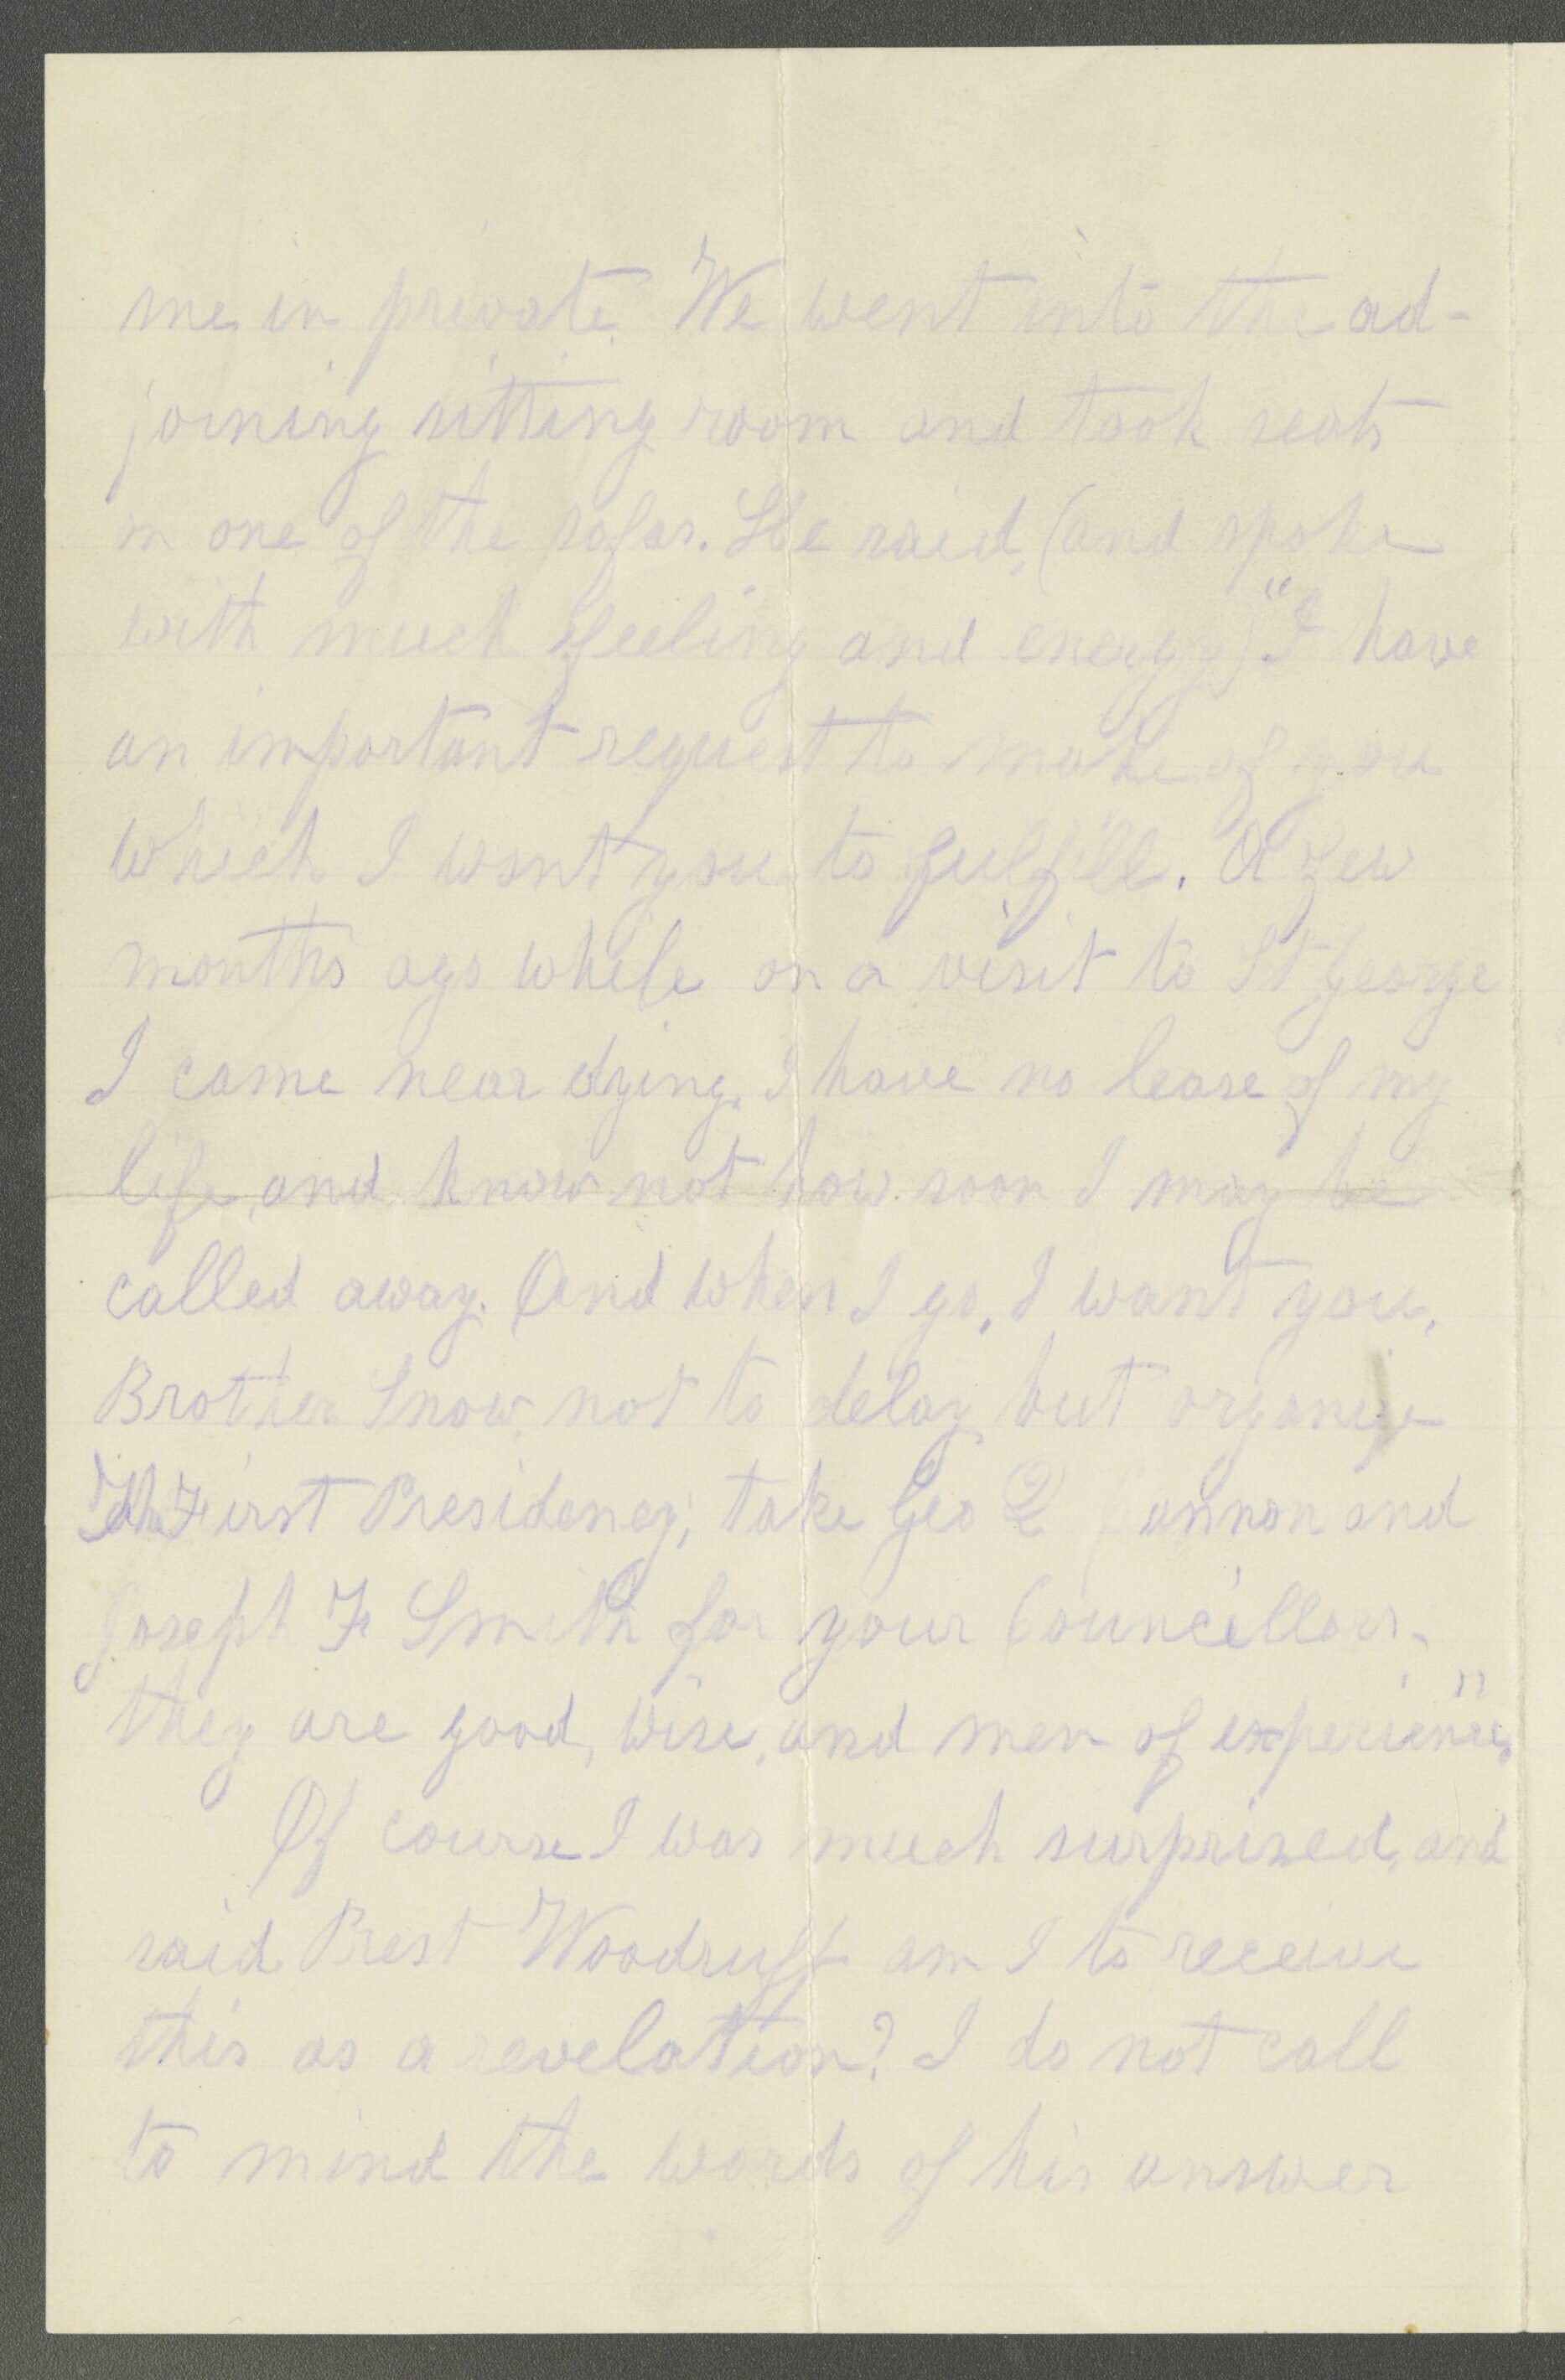 me in private. We went into the ad-
joining sitting room and took seats
on one of the sofas. He said, (and spoke
with much feeling and energy) "I have
an important request to make of you
which I want you to fulfill. A few
months ago while on a visit to St George
I came near dying. I have no lease of my
life, and know not how soon I may be
called away. And when I go, I want you,
Brother Snow, not to delay, but organize
The First Presidency; take Geo Q Cannon and
Joseph F Smith for your Councillors,
they are good, wise, and men of experience."
Of course I was much surprised, and
said, Prest Woodruff am I to receive
this as a revelation? I do not call
to mind the words of his answer